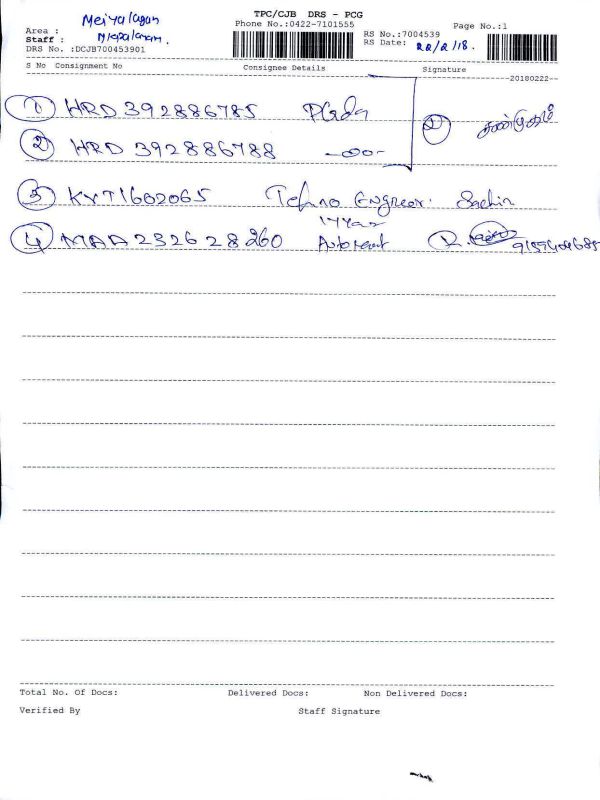 TPC/CJB DRS - PCG
Phone No.:0422-7101555
Page No.:1
Area :
Meiyalagan
Staff :
DRS No. :DCJB700453901
RS No.:7004539
RS Date: 22/2/18.
S No Consignment No Consignee Details Signature
20180222
1 HRD 392886785
2 சண்முகம்
2 HRD 392886788
3 KVT1602065 Tehno Engineer. Sachin
4 MAA 232628260 R.
Total No. Of Docs: Delivered Docs: Non Delivered Docs:
Verified By Staff Signature